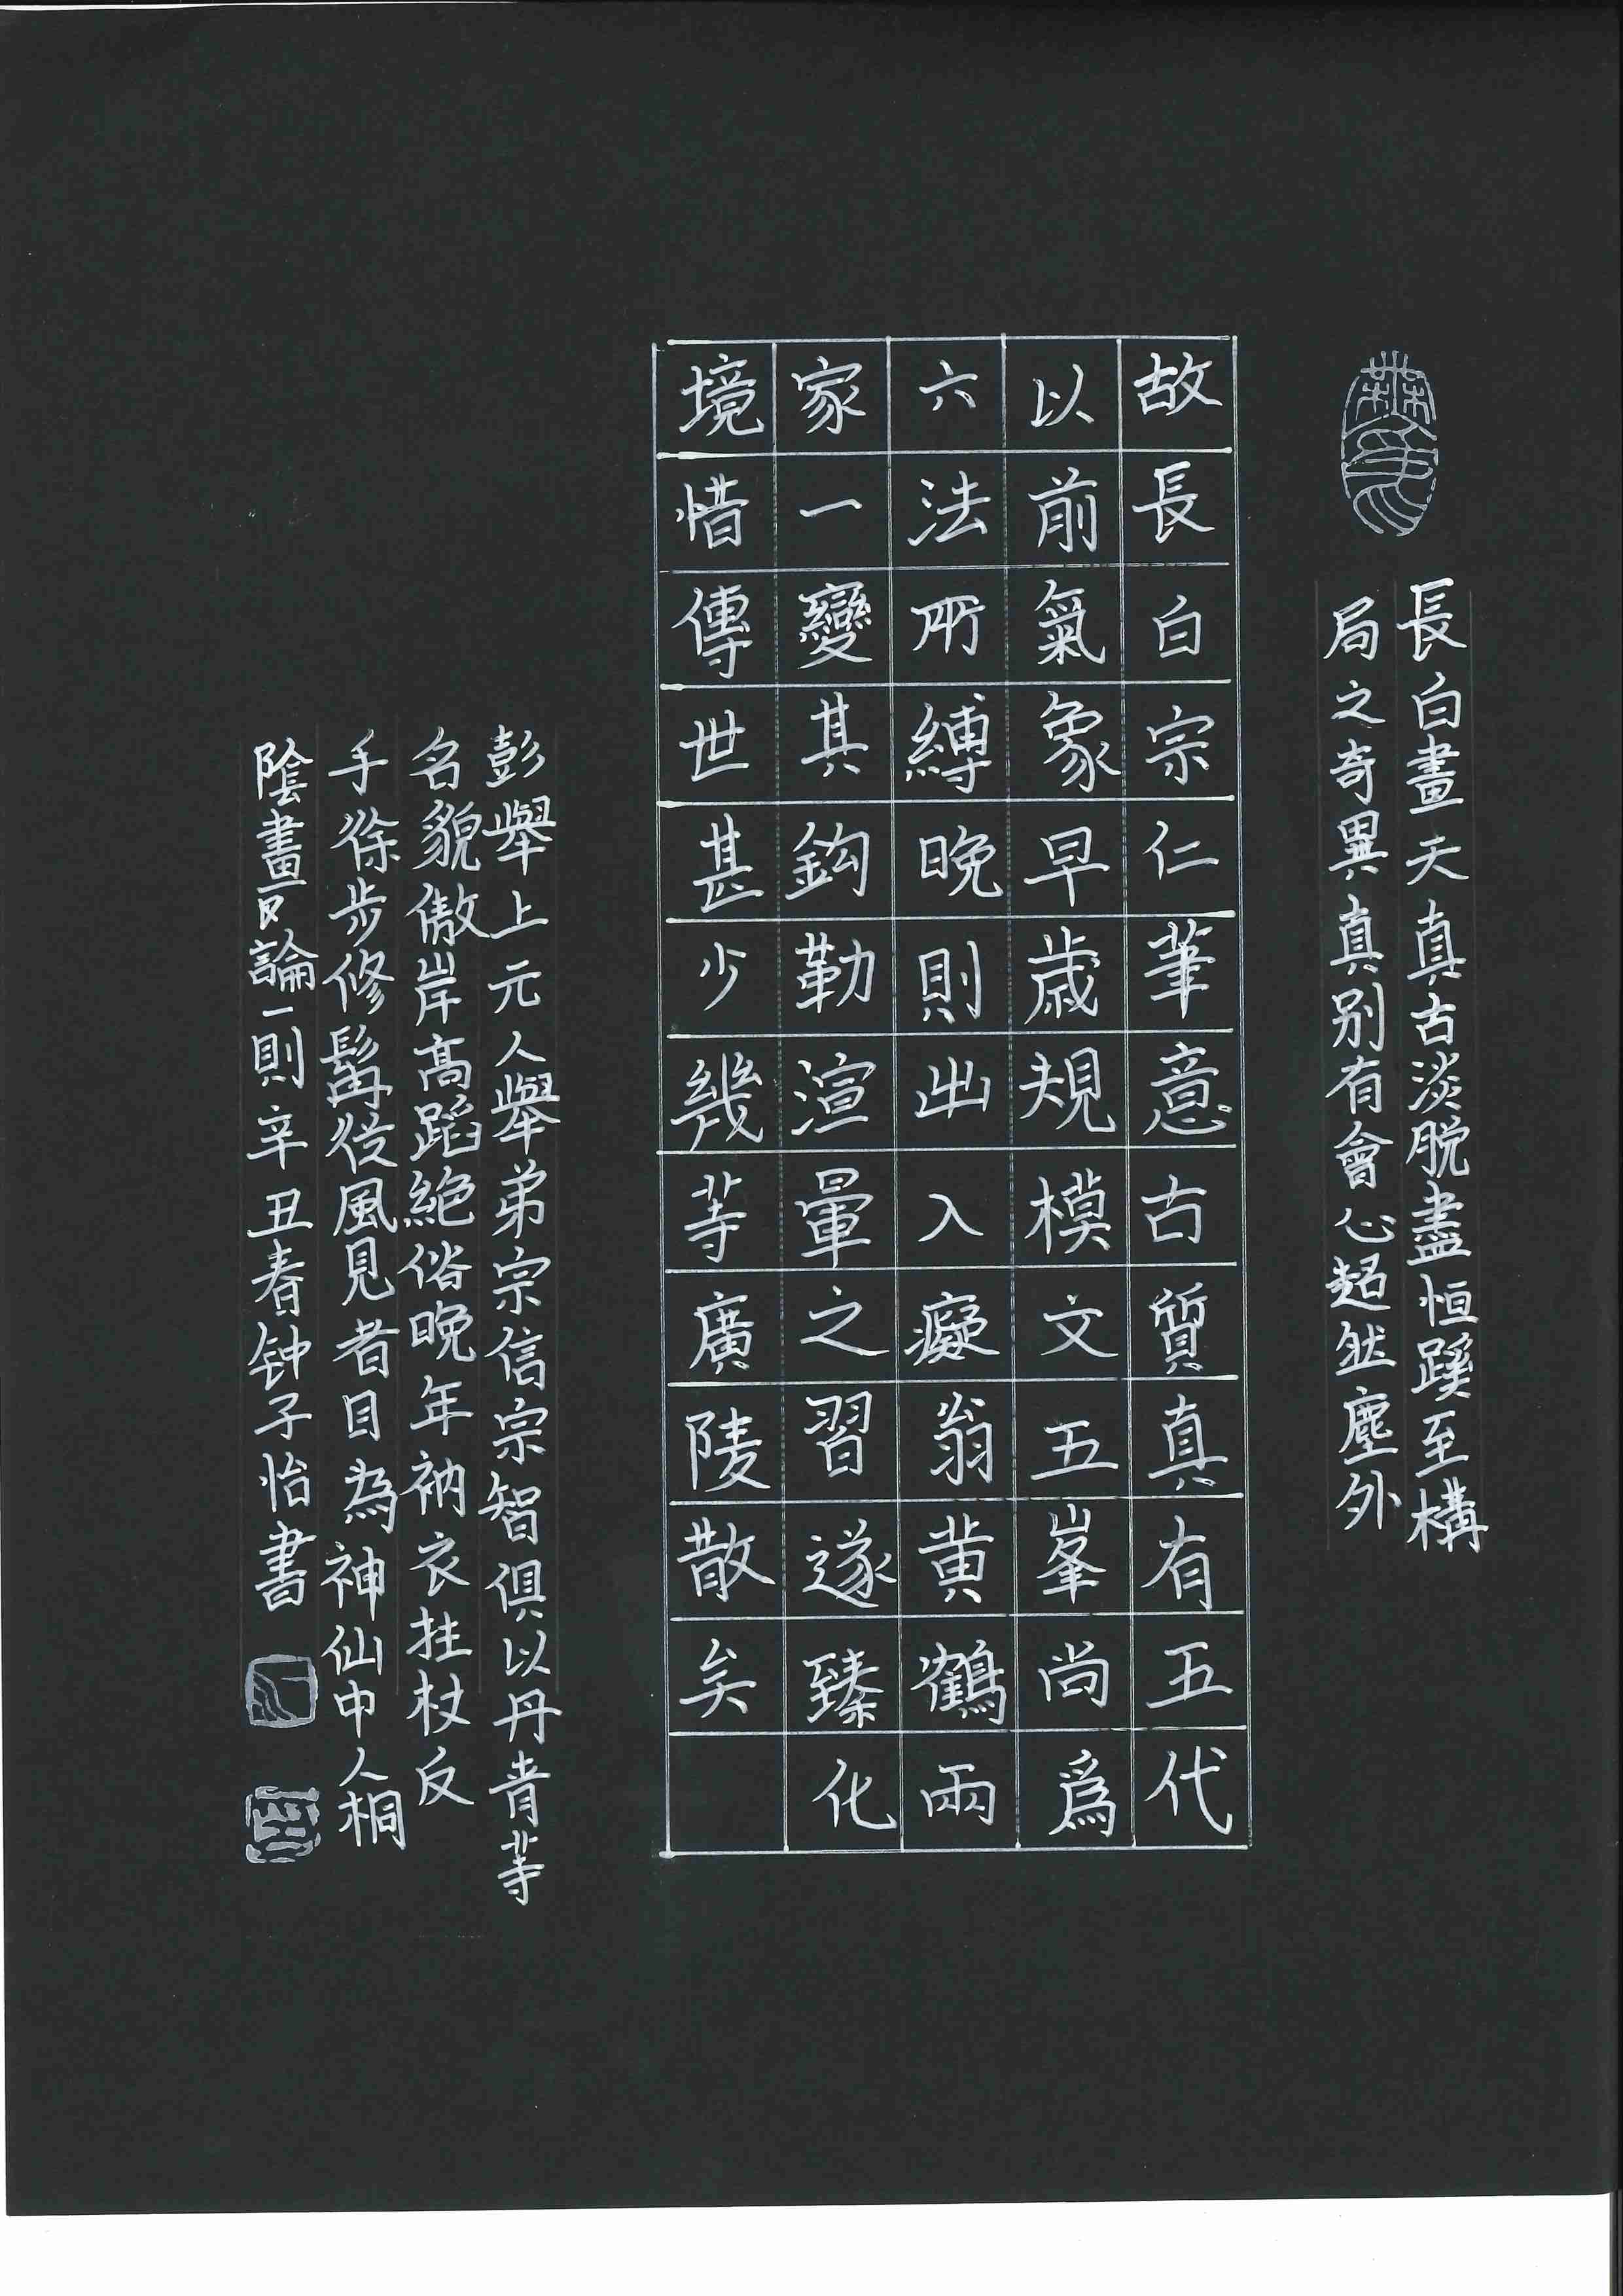 長白畫天真古淡脫盡恒蹊至構
局之奇異真别有會心超然塵外
故長白宗仁筆意古質真有五代
以前氣象早歲規模文五峯尚爲
六法所縛晚則出入癡翁黄鶴兩
家一變其鈎勒渲暈之習遂臻化
境惜傳世甚少幾等廣陵散矣
彭舉上元人舉弟宗信宗智俱以丹青等
名貌傲岸高蹈絶俗晚年衲衣拄杖反
手徐步修髯從風見者目為神仙中人桐
陰畫論一則辛丑春钟子怡書